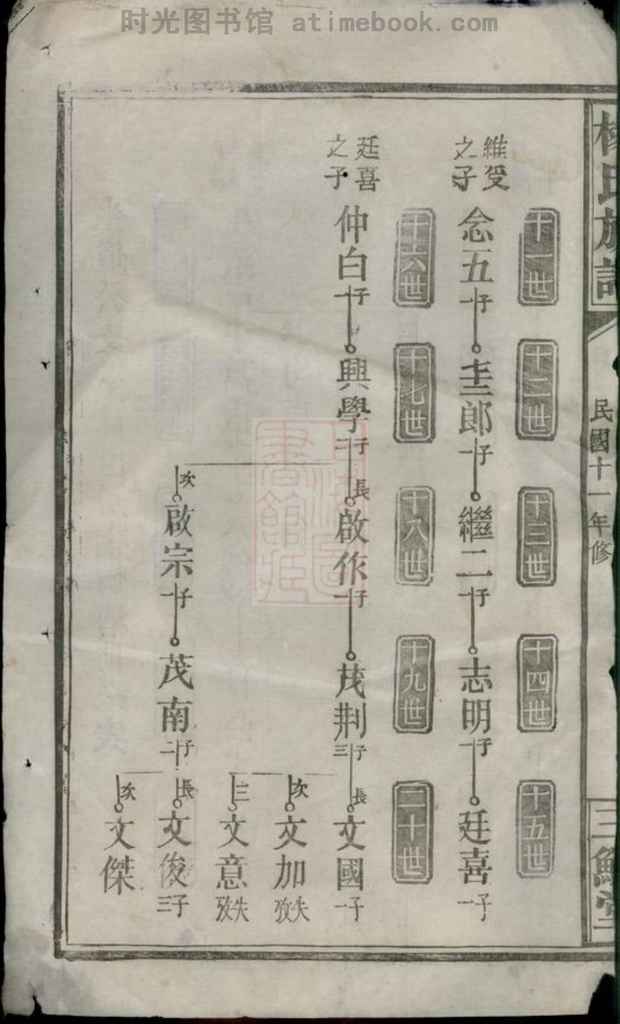 时光图书馆 atimebook.com
楊氏族譜
民國十一年修
三鱔堂
十一世
十二世
十三世
十四世
十五世
維受之子
念五 一子
圭郎 一子
繼二 一子
志明 一子
廷喜 一子
十六世
十七世
十八世
十九世
二十世
廷喜之子
仲白 一子
興學 二子
長 啟作 一子
茂荆 三子
長 文國 一子
次 文加 失攷
三 文意 失攷
次 啟宗 一子
茂南 二子
長 文俊 三子
次 文傑